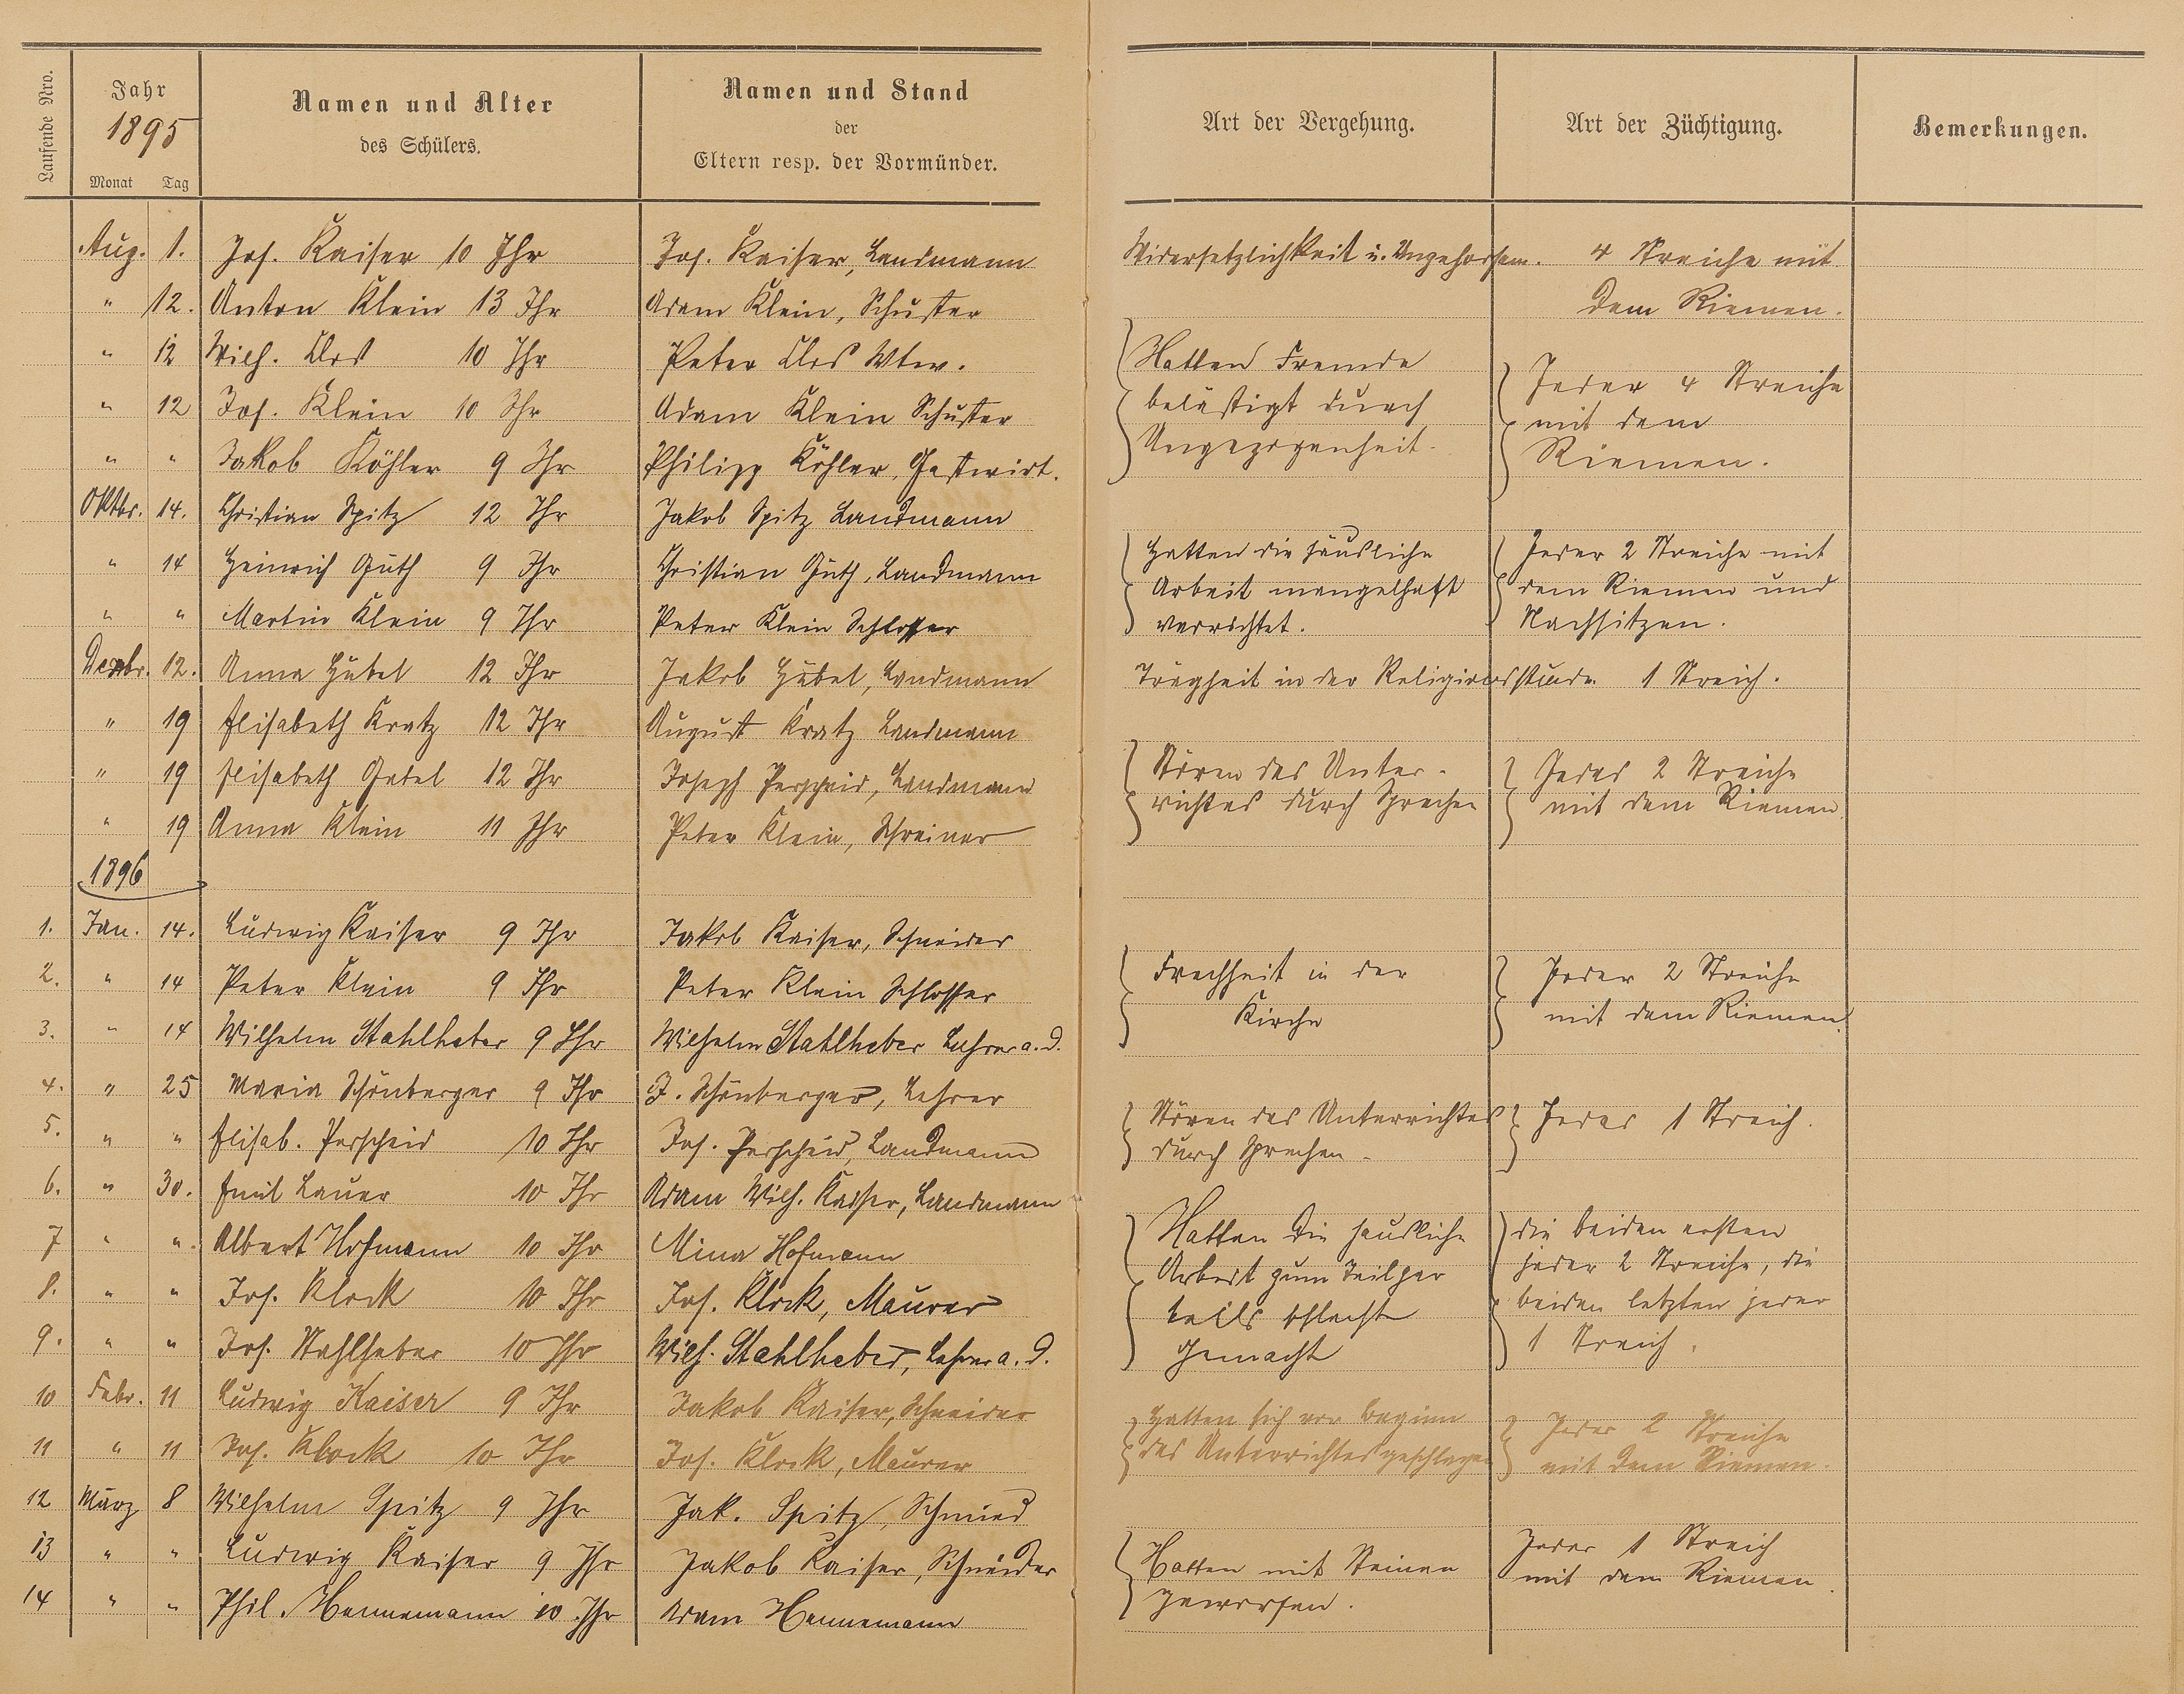 Laufende Nro.
Jahr
1895
Monat Tag
Namen und Alter
des Schülers.
Namen und Stand
der
Eltern resp. der Vormünder.
Art der Vergehung.
Art der Züchtigung.
Bemerkungen.
Aug. 1. Jos. Kaiser 10 Jhr Jos. Kaiser, Landmann Widersetzlichkeit u. Ungehorsam. 4 Streiche mit
dem Riemen.
" 12. Anton Klein 13 Jhr Adam Klein, Schuster
" 12 Wilh. Clos 10 Jhr Peter Clos Wtw.
" 12 Jos. Klein 10 Jhr Adam Klein Schuster
" " Jakob Köhler 9 Jhr Philipp Köhler, Gastwirt.
Hatten Fremde
belästigt durch
Ungezogenheit.
Jeder 4 Streiche
mit dem
Riemen.
Oktbr. 14. Christian Spitz 12 Jhr Jakob Spitz Landmann
" 14 Heinrich Guth 9 Jhr Christian Guth, Landmann
" " Martin Klein 9 Jhr Peter Klein Schlosser
Hatten die häusliche
Arbeit mangelhaft
verrichtet.
Jeder 2 Streiche mit
dem Riemen und
Nachsitzen.
Dezbr. 12. Anna Hübel 12 Jhr Jakob Hübel, Landmann Trägheit in der Religionsstunde 1 Streich.
" 19 Elisabeth Kratz 12 Jhr August Kratz Landmann
" 19 Elisabeth 12 Jhr Joseph Landmann
" 19 Anna Klein 11 Jhr Peter Klein, Schreiner
Stören des Unter-
richtes durch Sprechen
Jedes 2 Streiche
mit dem Riemen.
1896
1. Jan. 14. Ludwig Kaiser 9 Jhr Jakob Kaiser, Schneider
2. " 14 Peter Klein 9 Jhr Peter Klein Schlosser
3. " 14 Wilhelm Stahlheber 9 Jhr Wilhelm Stahlheber Lehrer a. d.
Frechheit in der
Kirche
Jeder 2 Streiche
mit dem Riemen.
4. " 25 Maria Schönberger 9 Jhr J. Schönberger, Lehrer
5. " " Elisab. Perscheid 10 Jhr Jos. Perscheid, Landmann
Stören des Unterrichtes
durch Sprechen.
Jedes 1 Streich.
6. " 30. Emil Lauer 10 Jhr Adam Wilh. Kaiser, Landmann
7 " ". Albert Hofmann 10 Jhr Mina Hofmann
8. " " Jos. Klock 10 Jhr Jos. Klock, Maurer
9. " " Jos. Stahlheber 10 Jhr Wilh. Stahlheber, Lehrer a. d.
Hatten die häusliche
Arbeit zum Teil gar
teils schlecht
gemacht
die beiden ersten
jeder 2 Streiche, die
beiden letzten jeder
1 Streich.
10 Febr. 11 Ludwig Kaiser 9 Jhr Jakob Kaiser, Schneider
11 " 11 Jos. Klock 10 Jhr Jos. Klock, Maurer
Hatten sich vor Beginn
des Unterrichtes geschlagen
Jeder 2 Streiche
mit dem Riemen.
12 März 8 Wilhelm Spitz 9 Jhr Jak. Spitz, Schmied
13 " " Ludwig Kaiser 9 Jhr Jakob Kaiser, Schneider
14 " " Phil. Hennemann 10 Jhr Adam Hennemann
Hatten mit Steinen
geworfen.
Jeder 1 Streich
mit dem Riemen.